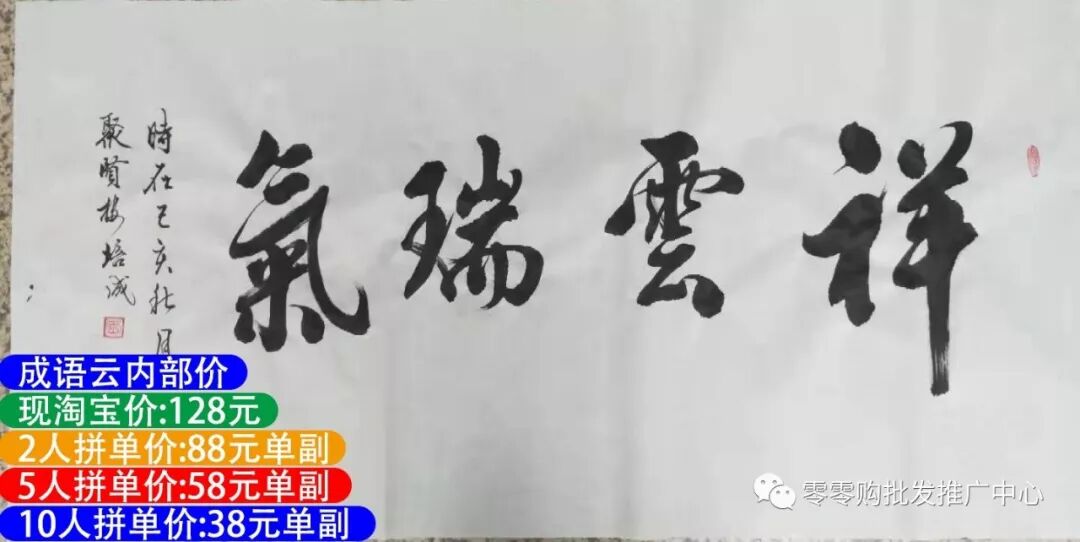 祥雲瑞氣
時在己亥秋月
聚賢梅培誠
成语云内部价
现淘宝价:128元
2人拼单价:88元单副
5人拼单价:58元单副
10人拼单价:38元单副
零零购批发推广中心